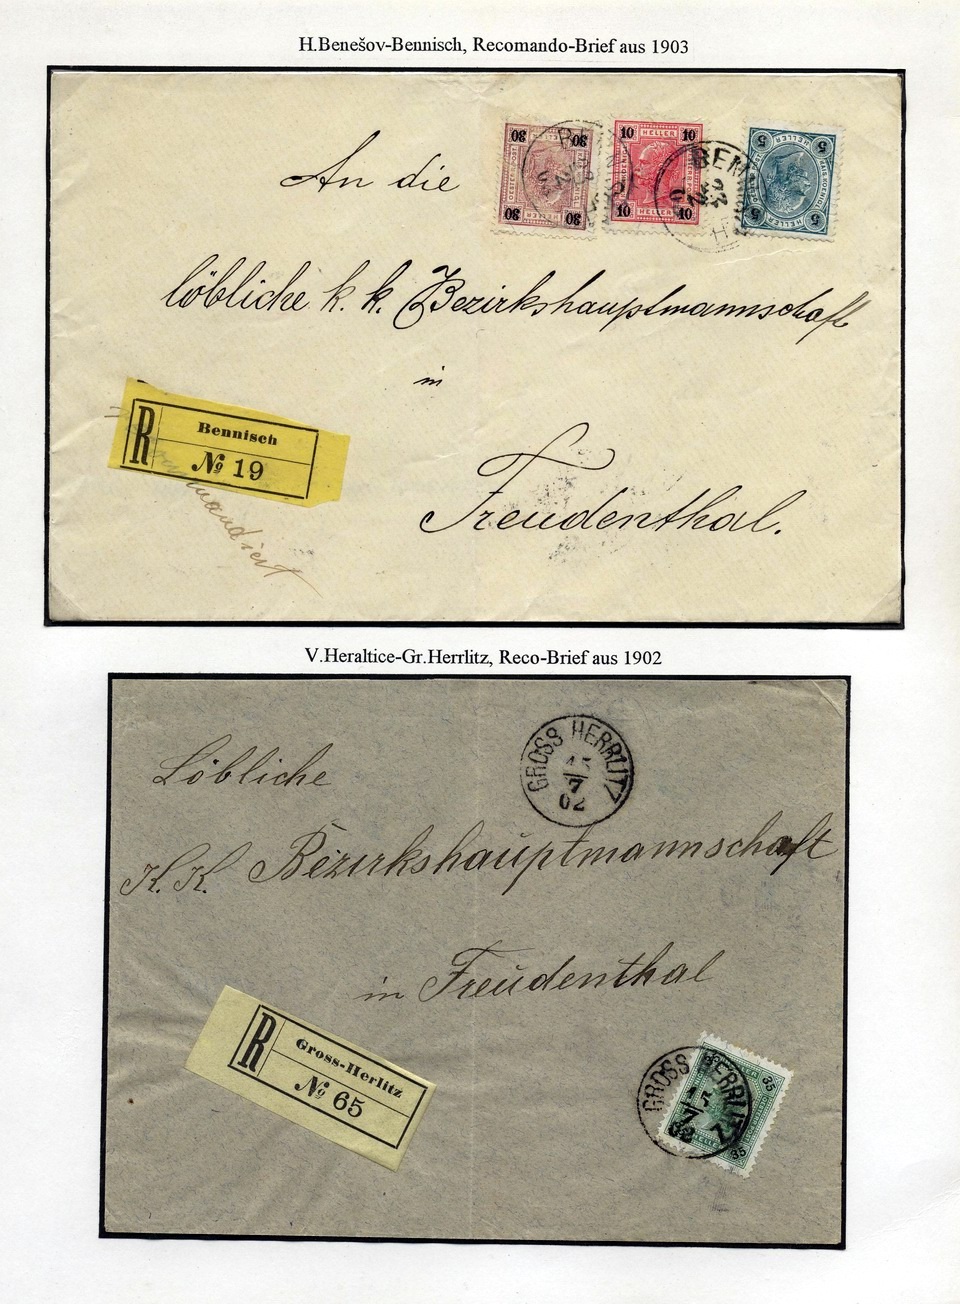 H.Benešov-Bennisch, Recomando-Brief aus 1903
An die
löbliche k. k. Bezirkshauptmannschaft
in
Freudenthal.
R
Bennisch
№ 19
30 30
30 30
10 HELLER 10
10 HELLER 10
5 HELLER 5
5 HELLER 5
BEN
V.Heraltice-Gr.Herrlitz, Reco-Brief aus 1902
GROSS HERRLITZ
15
7
02
Löbliche
K. K. Bezirkshauptmannschaft
in Freudenthal
R
Gross-Herlitz
№ 65
GROSS HERRLITZ
15
7
02
35
35